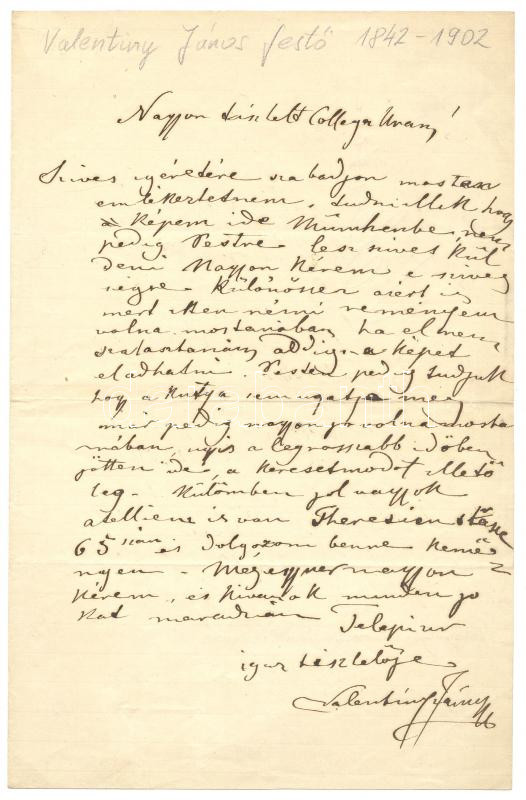 Valentiny János festő 1842-1902
Nagyon tisztelt Collega Uram!
Szives igéretére szabadjon mostan
emlékeztetnem, tudniillik hogy
a képem ide Münchenbe, nem
pedig Pestre lesz szives kül
deni Nagyon kérem e szives
ségre. Különössen azért is
mert itten némi reményem
volna mostanában, ha elmem
addig a képet
eladhatni. Pesten pedig tudjuk
hogy a kutya sem ugatja meg
már pedig nagyon jó volna mosta
nában, ugis a legrosszabb időben
jöttem ide, a keresetmodot illető
leg. Külömben jol vagyok
atelliem is van Theresien
65 és dolgozom benne kemé
nyen. Mégegyszer nagyon
kérem, és kivánok minden jo
kat maradván
igaz tisztelője
Valentiny János